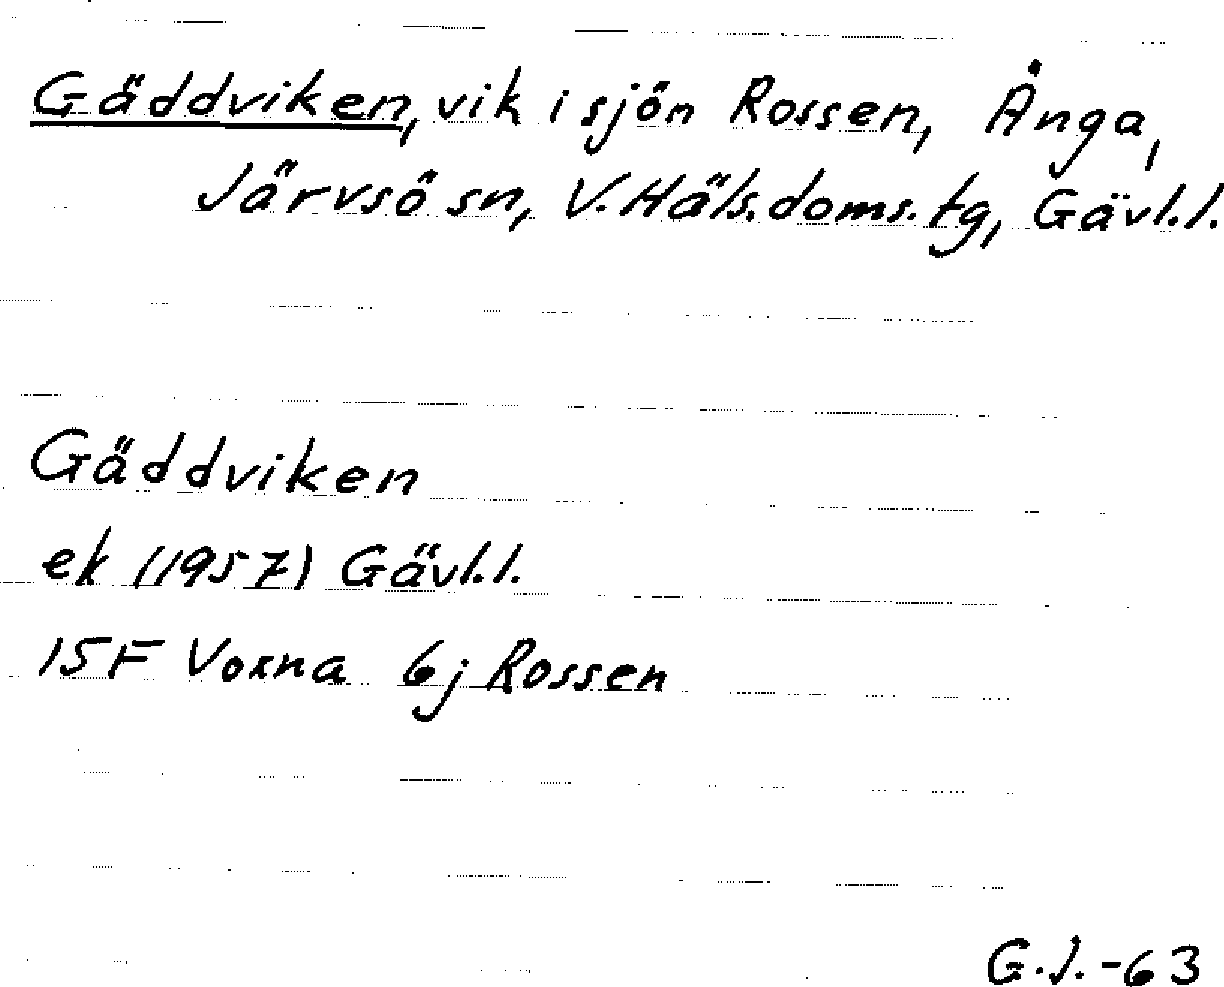 Gäddviken, vik i sjön Rossen, Ånga,
Järvsö sn, V. Häls. doms. tg, Gävl. l.
Gäddviken
ek (1957) Gävl. l.
15F Voxna 6j Rossen
G.J. -63